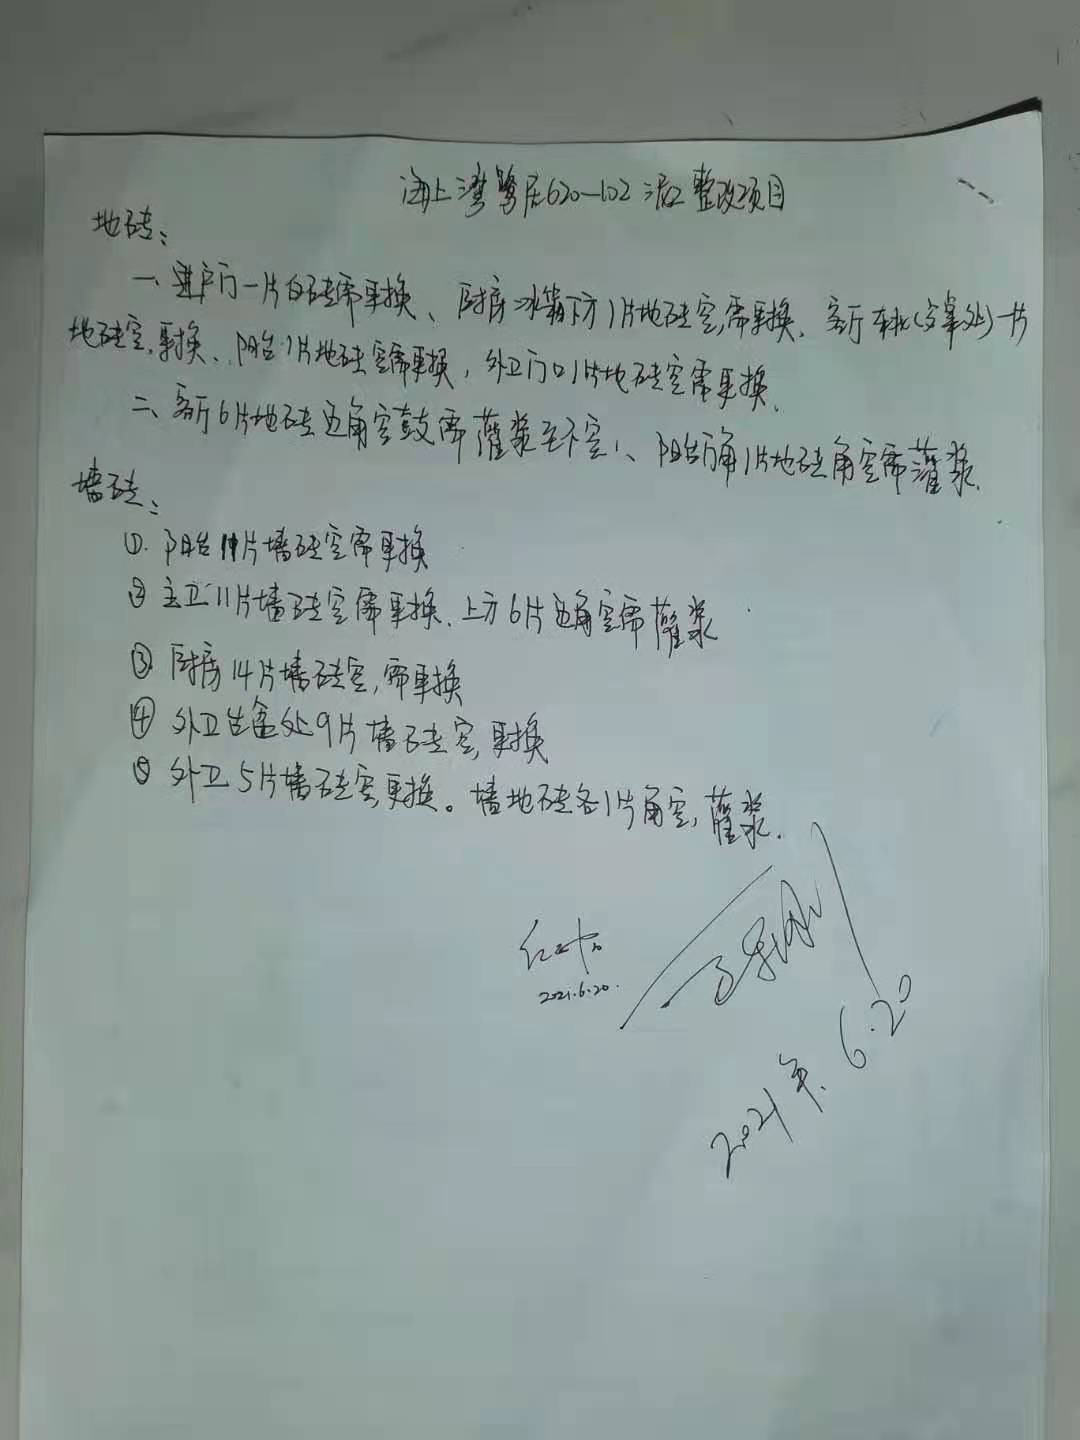 海上湾鹭居620-102泥工整改项目
地砖：
一、进户门一片白砖需更换、厨房冰箱下方1片地砖空，需更换、客厅东北(方桌处)一片
地砖空，更换、阳台1片地砖空需更换，外卫门口1片地砖空需更换、
二、客厅6片地砖边角空鼓需灌浆至不空！、阳台角1片地砖角空需灌浆.
墙砖：
①. 阳台11片墙砖空需更换
② 主卫11片墙砖空需更换、上方6片边角空需灌浆
③ 厨房14片墙砖空，需更换
④ 外卫坐盆处9片墙砖空，更换
⑤ 外卫5片墙砖空，更换。墙地砖各1片角空，灌浆.
2021.6.20.
2021年.6.20